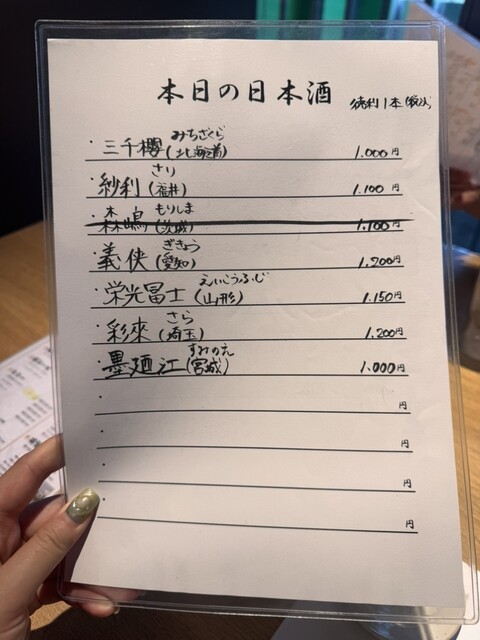 本日の日本酒
徳利1本(税込)
みちざくら
・三千櫻(北海道) 1.000円
さり
・紗利(福井) 1.100円
もりしま
・森嶋(茨城) 1.100円
ぎきょう
・義侠(愛知) 1.200円
えいこうふじ
・栄光冨士(山形) 1.150円
さら
・彩來(埼玉) 1.200円
すみのえ
・墨廼江(宮城) 1.000円
・ 円
・ 円
・ 円
・ 円